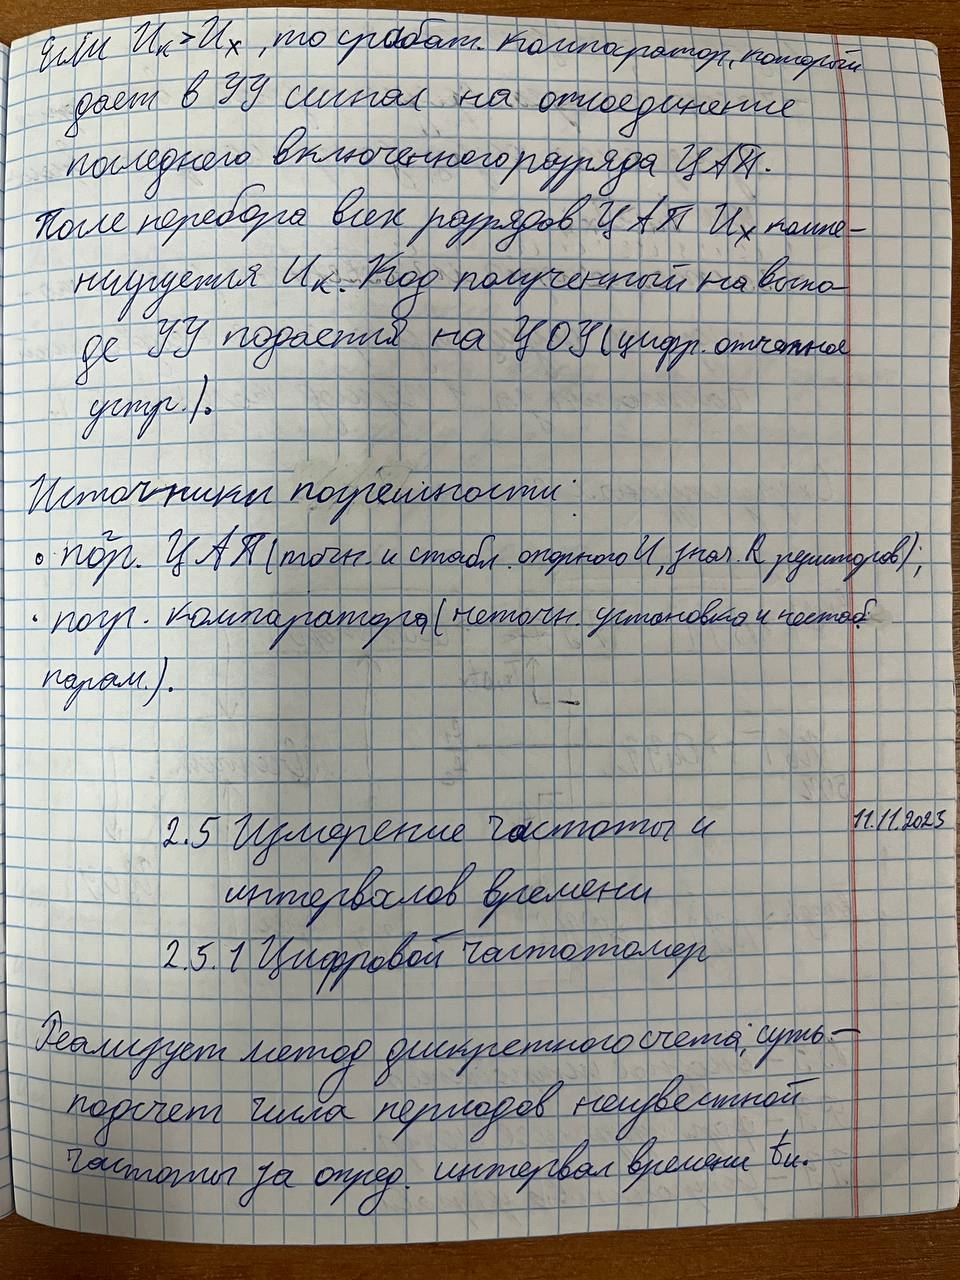 Если Uк > Uх, то срабат. компаратор, который
дает в УУ сигнал на отсоединение
последнего включенного разряда ЦАП.
После перебора всех разрядов ЦАП Uх компе-
нсируется Uк. Код полученный на выхо-
де УУ подается на ЦОУ (цифр. отчетное
устр.).
Источники погрешности:
• погр. ЦАП (точн. и стабл. опорного U, знач. R резисторов);
• погр. компаратора (неточн. установка и нестаб.
парам.).
2.5 Измерение частоты и
11.11.2023
интервалов времени
2.5.1 Цифровой частотомер
Реализует метод дискретного счета, суть -
подсчет числа периодов неизвестной
частоты за опред. интервал времени tи.